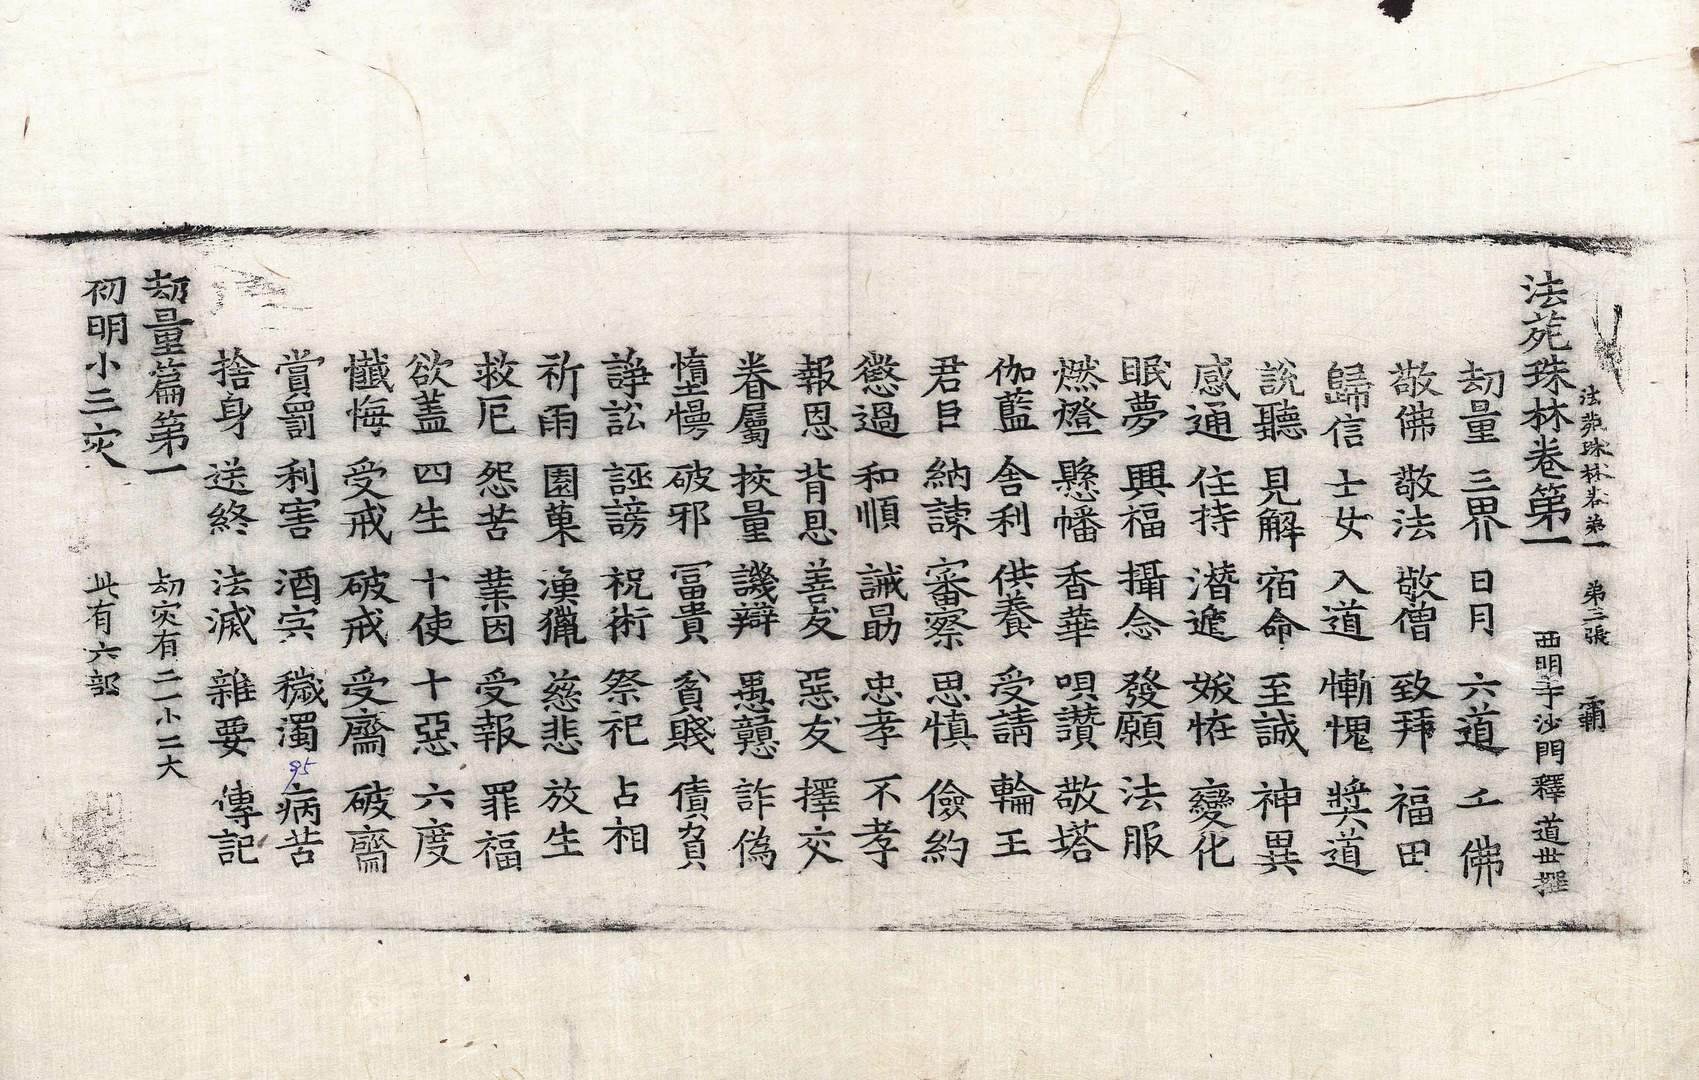 法苑珠林卷第一 第三張 霸
法苑珠林卷第一 西明寺沙門釋道世撰
劫量 三界 日月 六道 千佛
敬佛 敬法 敬僧 致拜 福田
歸信 士女 入道 慚愧 獎道
說聽 見解 宿命 至誠 神異
感通 住持 潛遁 妖怪 變化
眠夢 興福 攝念 發願 法服
燃燈 懸幡 香華 唄讚 敬塔
伽藍 舍利 供養 受請 輪王
君臣 納諫 審察 思慎 儉約
懲過 和順 誡勗 忠孝 不孝
報恩 背恩 善友 惡友 擇交
眷屬 挍量 譏辯 愚戇 詐偽
墯慢 破邪 冨貴 貧賤 債負
諍訟 誣謗 祝術 祭祀 占相
祈雨 園菓 漁獵 慈悲 放生
救厄 怨苦 業因 受報 罪福
欲盖 四生 十使 十惡 六度
懺悔 受戒 破戒 受齋 破齋
賞罰 利害 酒宍 穢濁 病苦
95
捨身 送終 法滅 雜要 傳記
劫量篇第一 劫灾有二一小二大
初明小三灾 此有六部